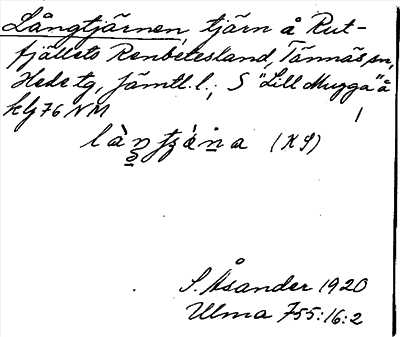 Långtjärnen, tjärn å Rut-
fjällets Renbetesland, Tännäs sn,
Hede tg, Jämtl. l.; S "Lill Mugga" å
klj 76 NM
(KS)
S. Åsander 1920
Ulma 755:16:2